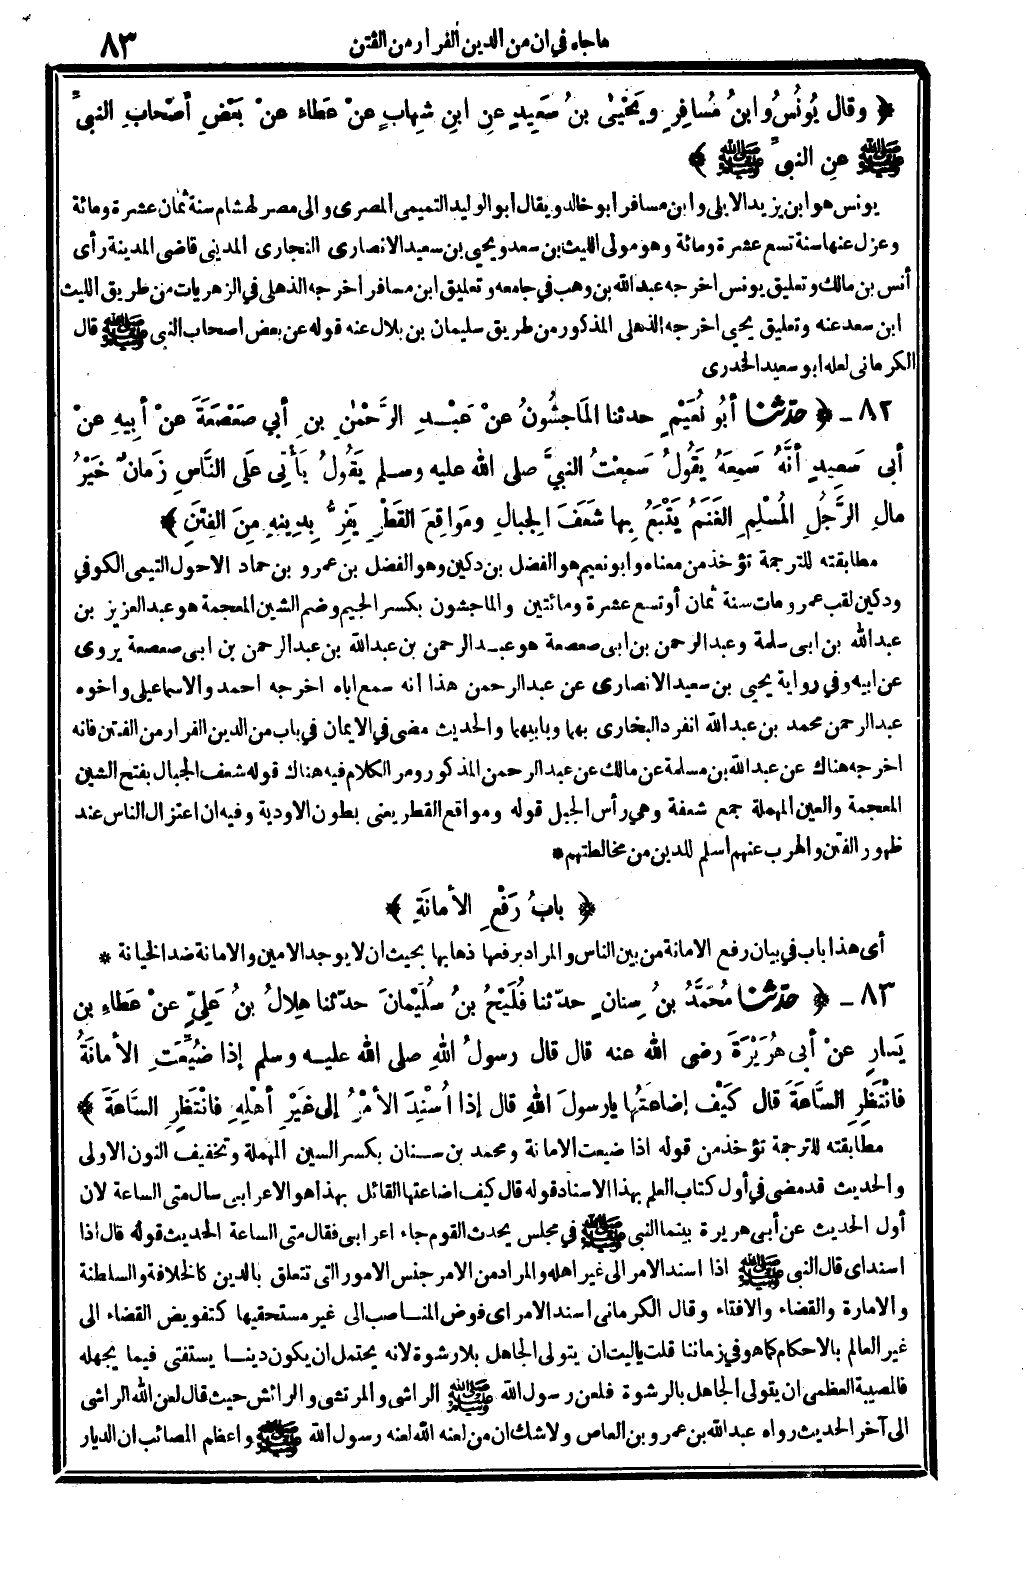 ما جاء في ان من الدين الفرار من الفتن
٨٣
﴿ وقال يُونُسُ وابنُ مُسافِرٍ ويَحْيَى بنُ سَعِيدٍ عنِ ابنِ شِهابٍ عنْ عَطاءٍ عنْ بَعْضِ أصْحابِ النبيِّ
ﷺ عنِ النبيِّ ﷺ ﴾
يونس هو ابن يزيد الايلي وابن مسافر ابو خالد ويقال ابو الوليد التميمي المصرى والى مصر لهشام سنة ثمان عشرة ومائة
وعزل عنها سنة تسع عشرة ومائة وهو مولى الليث بن سعد ويحيى بن سعيد الانصارى النجارى المدني قاضي المدينة رأى
أنس بن مالك وتعليق يونس اخرجه عبد الله بن وهب في جامعه وتعليق ابن مسافر أخرجه الذهلى في الزهريات من طريق الليث
ابن سعد عنه وتعليق يحيى اخرجه الذهلى المذكور من طريق سليمان بن بلال عنه قوله عن بعض اصحاب النبي ﷺ قال
الكرماني لعله ابو سعيد الخدرى
٨٢ - ﴿ حدّثنا أبُو نُعَيْمٍ حدثنا المَاجِشُونُ عنْ عَبْدِ الرَّحْمٰنِ بنِ أبي صَعْصَعَةَ عنْ أبِيهِ عنْ
أبى سَعِيدٍ أنَّهُ سَمِعَهُ يَقُولُ سَمِعْتُ النبيَّ صلى الله عليه وسلم يَقُولُ يَأْتِى عَلَى النَّاسِ زَمانٌ خَيْرُ
مالِ الرَّجُلِ المُسْلِمِ الغَنَمُ يَتْبَعُ بِها شَعَفَ الجِبالِ ومَوَاقِعَ القَطْرِ يَفِرُّ بِدِينِهِ مِنَ الفِتَنِ ﴾
مطابقته للترجمة تؤخذ من معناه وابو نعيم هو الفضل بن دكين وهو الفضل بن عمرو بن حماد الاحول التيمى الكوفي
ودكين لقب عمرو مات سنة ثمان أو تسع عشرة ومائتين والماجشون بكسر الجيم وضم الشين المعجمة هو عبد العزيز بن
عبد الله بن ابى سلمة وعبد الرحمن بن ابى صعصعة هو عبد الرحمن بن عبد الله بن عبد الرحمن بن ابى صعصعة يروى
عن ابيه وفي رواية يحيى بن سعيد الانصارى عن عبد الرحمن هذا أنه سمع أباه اخرجه احمد والاسماعيلى واخوه
عبد الرحمن محمد بن عبد الله انفرد البخارى بهما وبابيهما والحديث مضى في الايمان في باب من الدين الفرار من الفتن فانه
اخرجه هناك عن عبد الله بن مسلمة عن مالك عن عبد الرحمن المذكور ومر الكلام فيه هناك قوله شعف الجبال بفتح الشين
المعجمة والعين المهملة جمع شعفة وهي رأس الجبل قوله ومواقع القطر يعنى بطون الاودية وفيه ان اعتزال الناس عند
ظهور الفتن والهرب عنهم أسلم للدين من مخالطتهم *
﴿ بابُ رَفْعِ الأمانَةِ ﴾
أى هذا باب في بيان رفع الامانة من بين الناس والمراد برفعها ذهابها بحيث ان لا يوجد الامين والامانة ضد الخيانة *
٨٣ - ﴿ حدّثنا مُحَمَّدُ بنُ سِنانٍ حدّثنا فُلَيْحُ بنُ سُلَيْمَانَ حدّثنا هِلالُ بنُ عَلِيٍّ عنْ عَطاءِ بنِ
يَسارٍ عنْ أبى هُرَيْرَةَ رضى الله عنه قال قال رسولُ اللهِ صلى الله عليه وسلم إذا ضُيِّعَتِ الأمانَةُ
فانْتَظِرِ السَّاعَةَ قال كَيْفَ إضاعَتُها يا رسولَ اللهِ قال إذا أُسْنِدَ الأمْرُ إلى غَيْرِ أهْلِهِ فانْتَظِرِ السَّاعَةَ ﴾
مطابقته للترجمة تؤخذ من قوله اذا ضيعت الامانة ومحمد بن سنان بكسر السين المهملة وتخفيف النون الاولى
والحديث قد مضى في أول كتاب العلم بهذا الاسناد قوله قال كيف اضاعتها القائل بهذا هو الاعرابى سال متى الساعة لان
أول الحديث عن أبى هريرة بينما النبي ﷺ في مجلس يحدث القوم جاء اعرابى فقال متى الساعة الحديث قوله قال اذا
اسند اى قال النبى ﷺ اذا اسند الامر الى غير اهله والمراد من الامر جنس الامور التي تتعلق بالدين كالخلافة والسلطنة
والامارة والقضاء والافتاء وقال الكرماني اسند الامر اى فوض المناصب الى غير مستحقيها كتفويض القضاء الى
غير العالم بالاحكام كما هو في زماننا قلت ياليت ان يتولى الجاهل بلا رشوة لانه يحتمل ان يكون دينا يستفتى فيما يجهله
فالمصيبة العظمى ان يتولى الجاهل بالرشوة فلعن رسول الله ﷺ الراشى والمرتشى والرائش حيث قال لعن الله الراشى
الى آخر الحديث رواه عبد الله بن عمرو بن العاص ولا شك ان من لعنه الله لعنه رسول الله ﷺ واعظم المصائب ان الديار